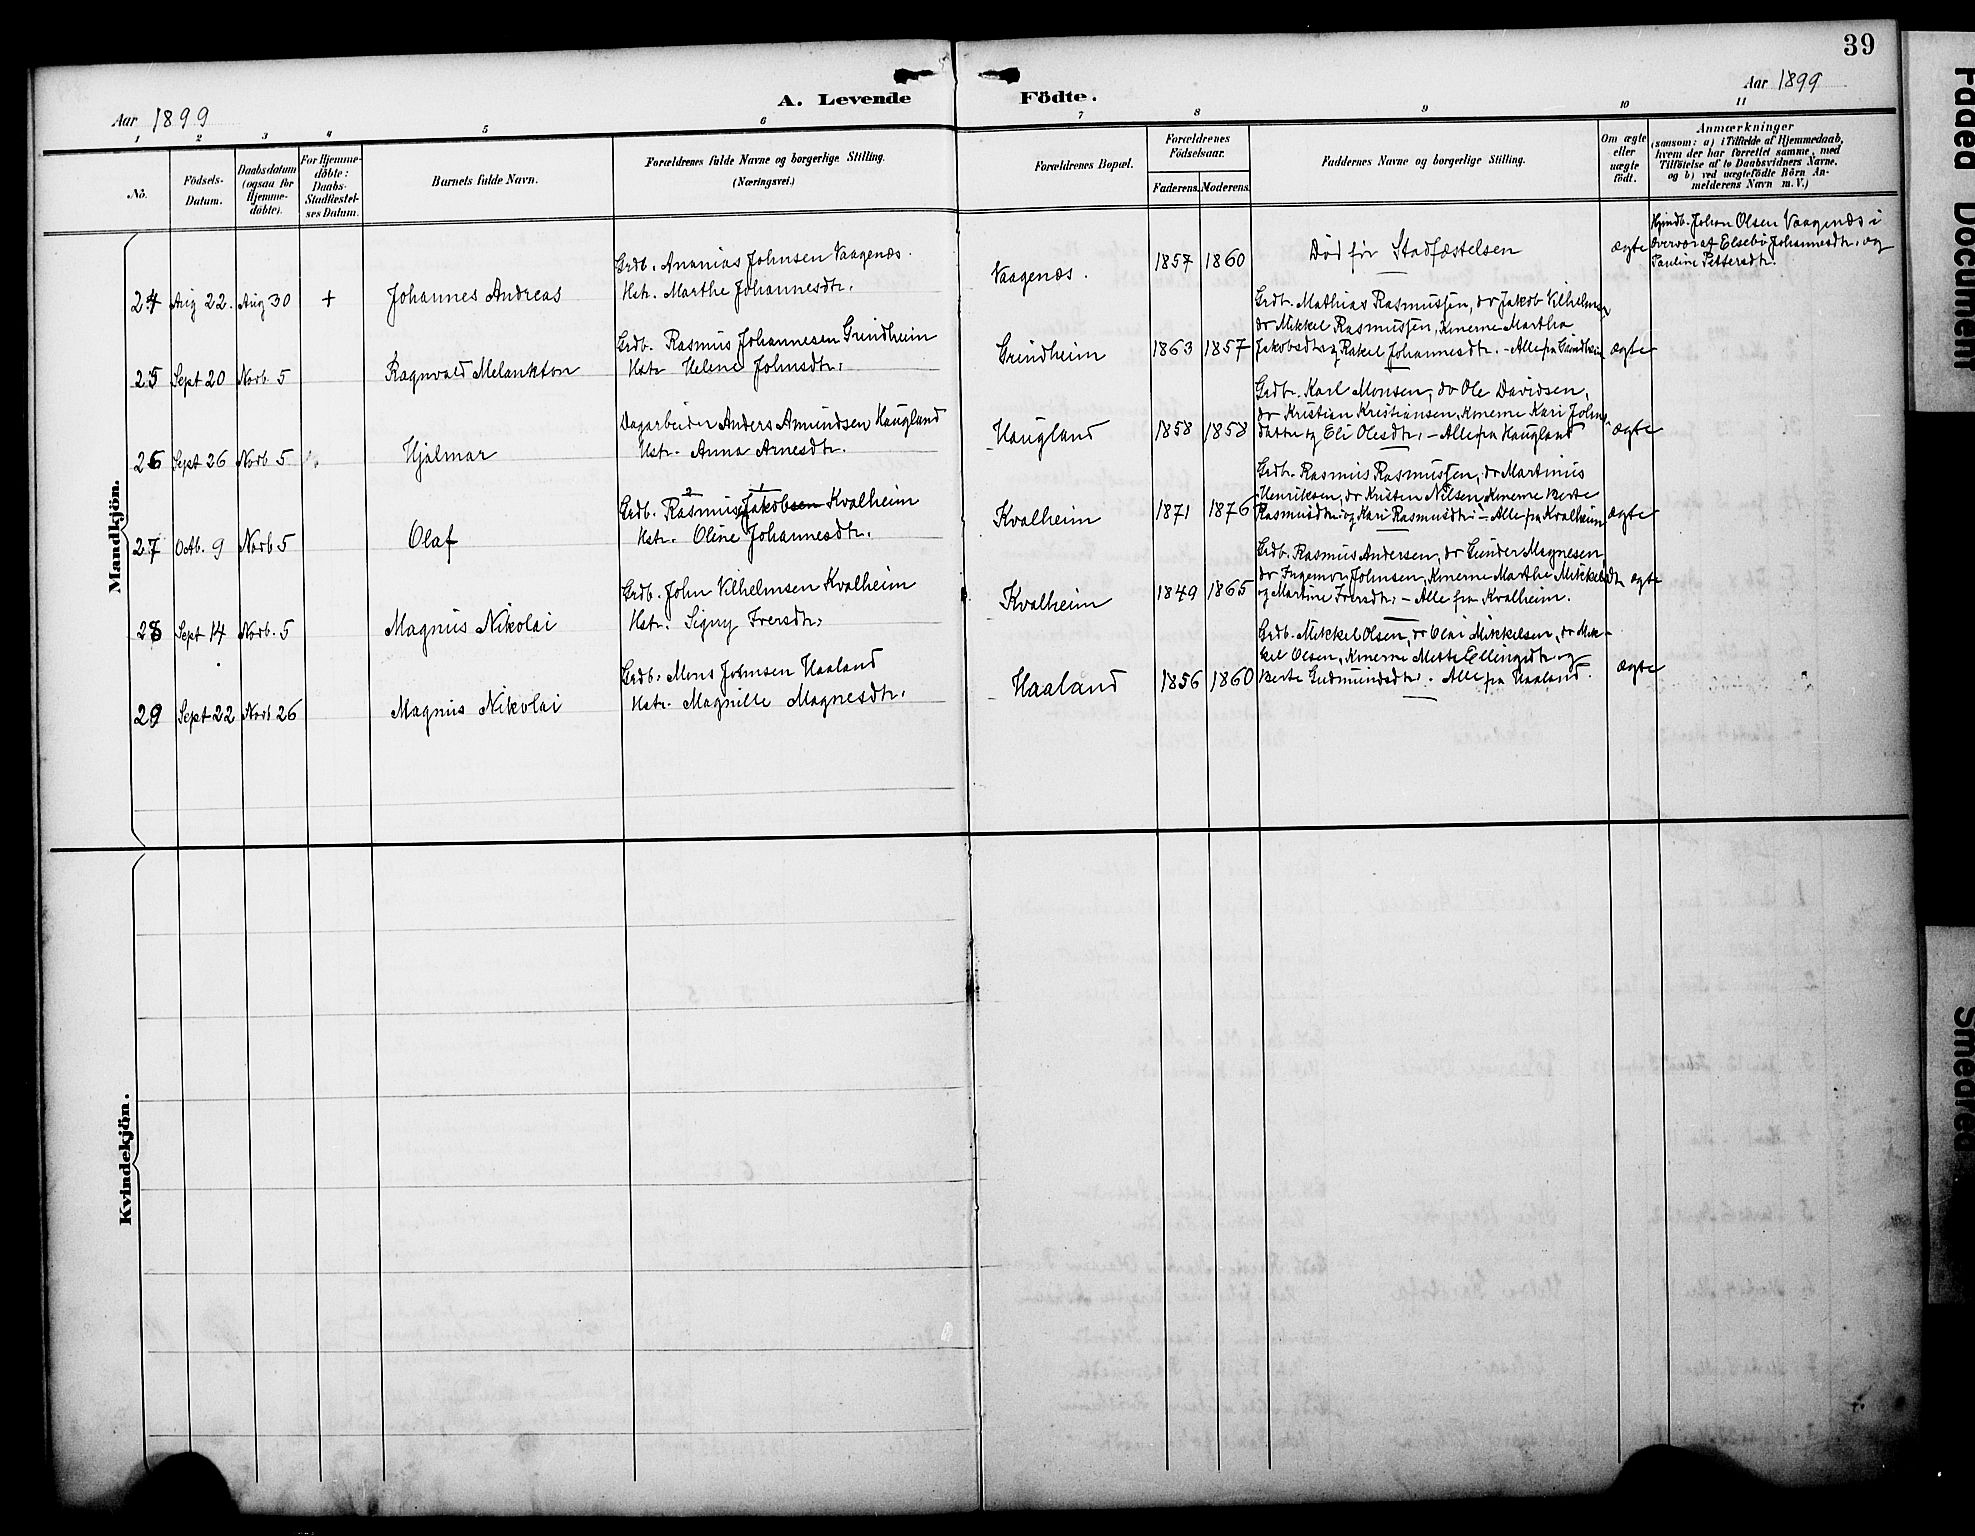 39
Aar 1899
A. Levende Födte.
Aar 1899
1 2 3 4 5 6 7 8 9 10 11
No.
Födsels-
Datum.
Daabsdatum
(ogsaa for
Hjemme-
döbte).
For Hjemme-
döbte:
Daabs-
Stadfæstel-
ses Datum.
Barnets fulde Navn.
Forældrenes fulde Navne og borgerlige Stilling.
(Næringsvei.)
Forældrenes Bopæl.
Forældrenes
Födselsaar.
Faderens. Moderens.
Faddernes Navne og borgerlige Stilling.
Om ægte
eller
uægte
födt.
Anmærkninger
(saasom: a) i Tilfælde af Hjemmedaab,
hvem der har forrettet samme, med
Tilföielse af to Daabsvidners Navne,
og b) ved uægtefödte Börn An-
melderens Navn m. V.)
Mandkjön.
24 Aug 22. Aug 30 + Johannes Andreas
Grdb. Ananias Johnsen Vaagenæs.
Hstr. Marthe Johannesdtr.
Vaagenæs. 1857 1860
Død før Stadfæstelsen
ægte
Hjmdb. Johan Olsen Vaagenæs i
overvær af Elsebø Johannesdtr. og
Pauline Pettersdtr.
25 Sept 20 Novb 5 Ragnvald Melankton
Grdb. Rasmus Johannesen Grindheim
Hstr Helene Johnsdtr.
Grindheim 1863 1857
Grdb. Mathias Rasmussen, do Jakob Vilhelmsen
do Mikkel Rasmussen, Knerne Martha
Jakobsdtr og Rakel Johannesdtr. - Alle fra Grindheim
ægte
26 Sept 26 Novb 5 Hjalmar
Dagarbeider Anders Amundsen Haugland
Hstr. Anna Arnesdtr.
Haugland 1858 1858
Grdb. Karl Monsen, do Ole Davidsen,
do Kristian Kristiansen, Knerne Kari Johns
datter og Eli Olesdtr. - Alle fra Haugland
ægte
27 Octb. 9 Novb 5 Olaf
2 1
Grdb. Rasmus Jakobsen Kvalheim
Hstr. Oline Johannesdtr.
Kvalheim 1871 1876
Grdb. Rasmus Rasmussen, do Martinus
Henriksen, do Kristen Nilsen, Knerne Berte
Rasmusdtr og Kari Rasmusdtr. - Alle fra Kvalheim
ægte
28 Sept 14 Novb. 5 Magnus Nikolai
Grdb. John Vilhelmsen Kvalheim
Hstr. Signy Iversdtr.
Kvalheim 1849 1865
Grdb. Rasmus Andersen, do Gunder Magnesen
do Ingemor Johnsen, Knerne Marthe Mikkelsdtr
og Martine Iversdtr. - Alle fra Kvalheim.
ægte
29 Sept 22 Novb 26 Magnus Nikolai
Grdb. Mons Johnsen Haaland
Hstr. Magnille Magnesdtr.
Haaland 1856 1860
Grdb. Mikkel Olsen, do Olai Mikkelsen, do Mik-
kel Olsen, Knerne Mette Ellingsdtr og
Berte Gudmundsdtr. Alle fra Haaland.
ægte
Kvindekjön.
Faded Document
Smeared